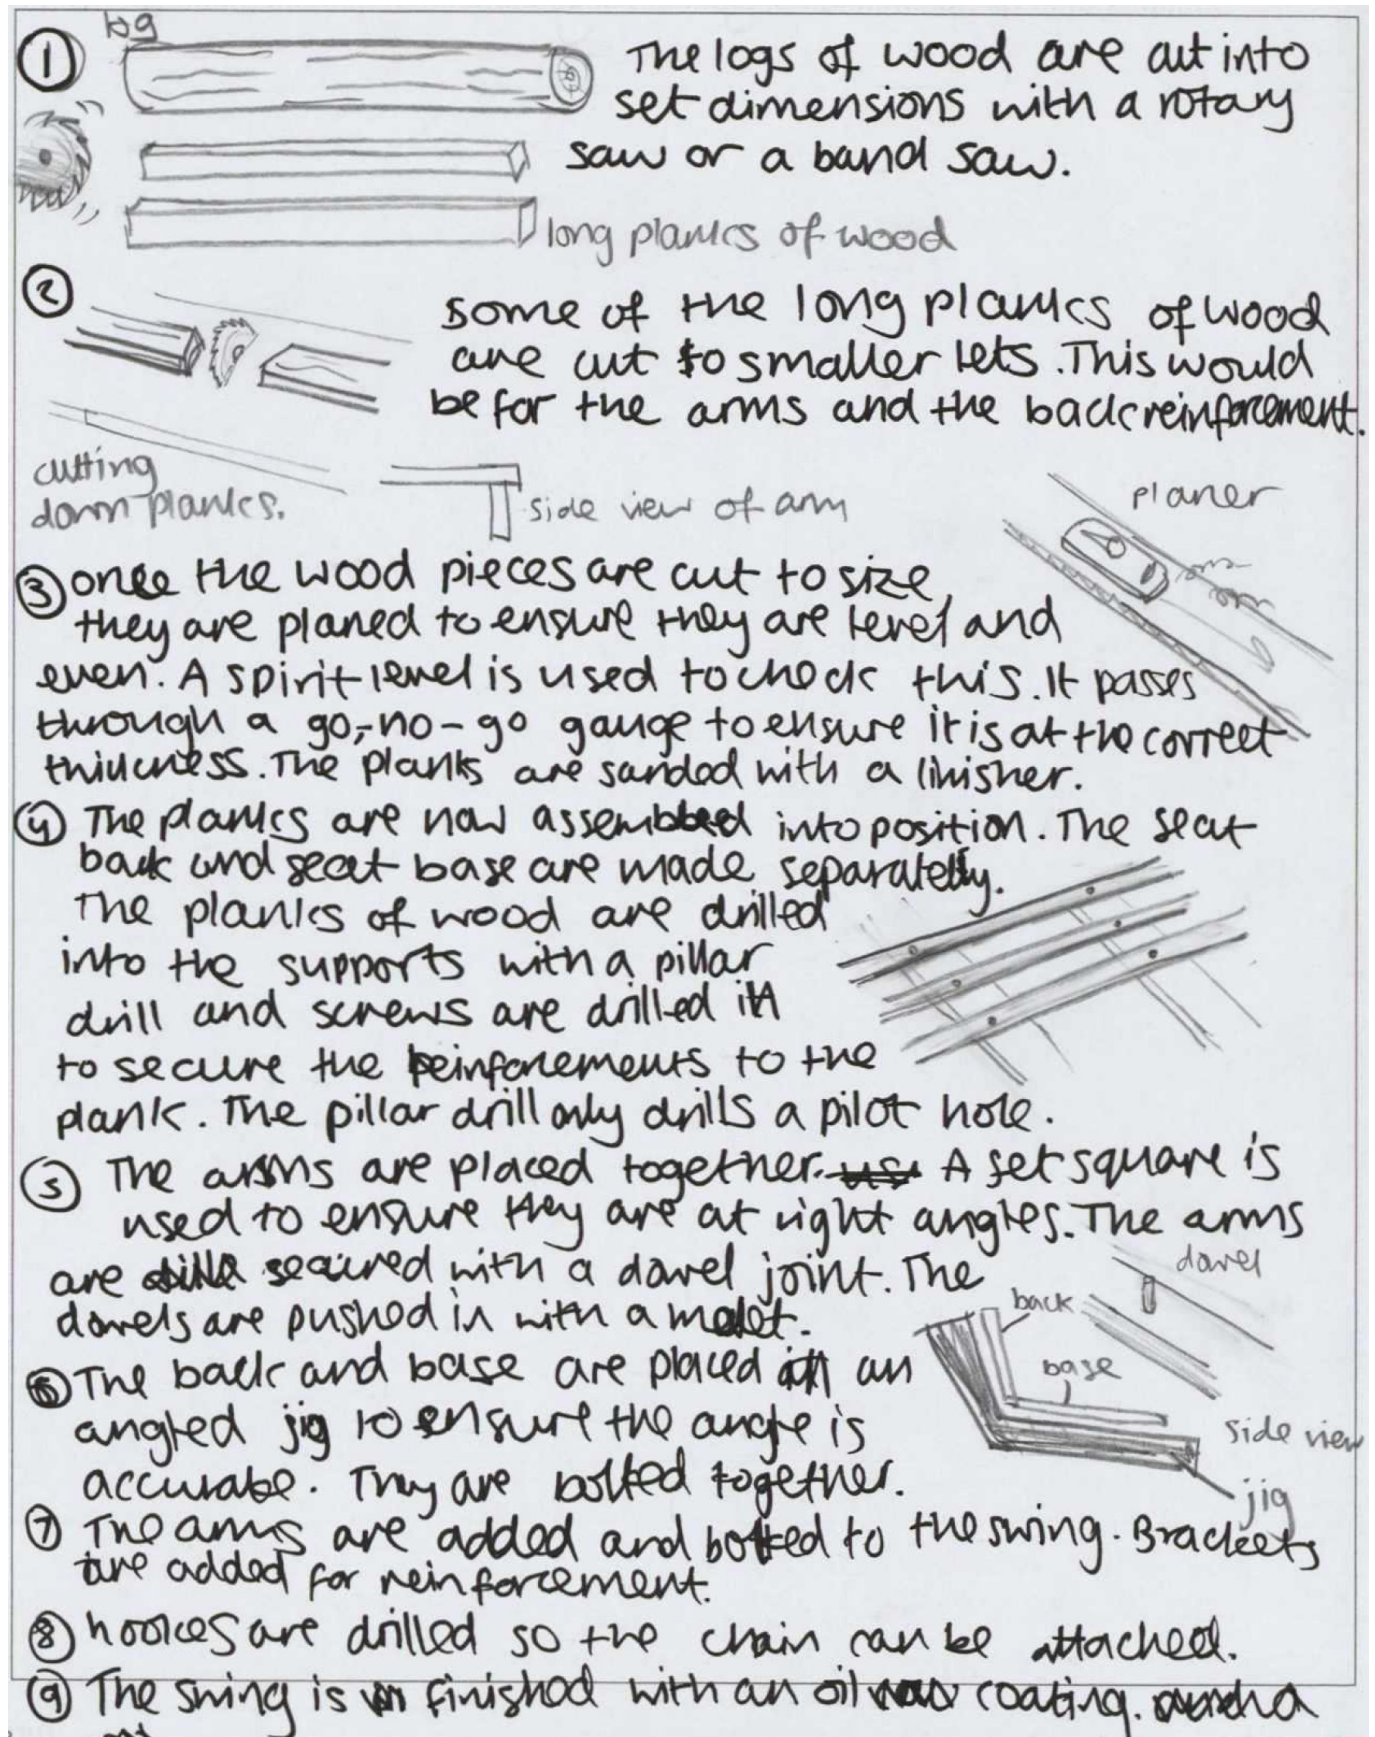 log
①
The logs of wood are cut into
set dimensions with a rotary
saw or a band saw.
long planks of wood
②
Some of the long planks of wood
are cut to smaller lets. This would
be for the arms and the back reinforcement.
cutting
down planks.
side view of arm
planer
③ once the wood pieces are cut to size,
they are planed to ensure they are level and
even. A spirit level is used to check this. It passes
through a go-no-go gauge to ensure it is at the correct
thickness. The planks are sanded with a linisher.
④ The planks are now assembled into position. The seat
back and seat base are made separately.
The planks of wood are drilled
into the supports with a pillar
drill and screws are drilled in
to secure the reinforcements to the
plank. The pillar drill only drills a pilot hole.
⑤ The arms are placed together. A set square is
used to ensure they are at right angles. The arms
are secured with a dowel joint. The
dowels are pushed in with a mallet.
dowel
back
base
side view
jig
⑥ The back and base are placed in an
angled jig to ensure the angle is
accurate. They are bolted together.
⑦ The arms are added and bolted to the swing. Brackets
are added for reinforcement.
⑧ hooks are drilled so the chain can be attached.
⑨ The swing is finished with an oil coating.